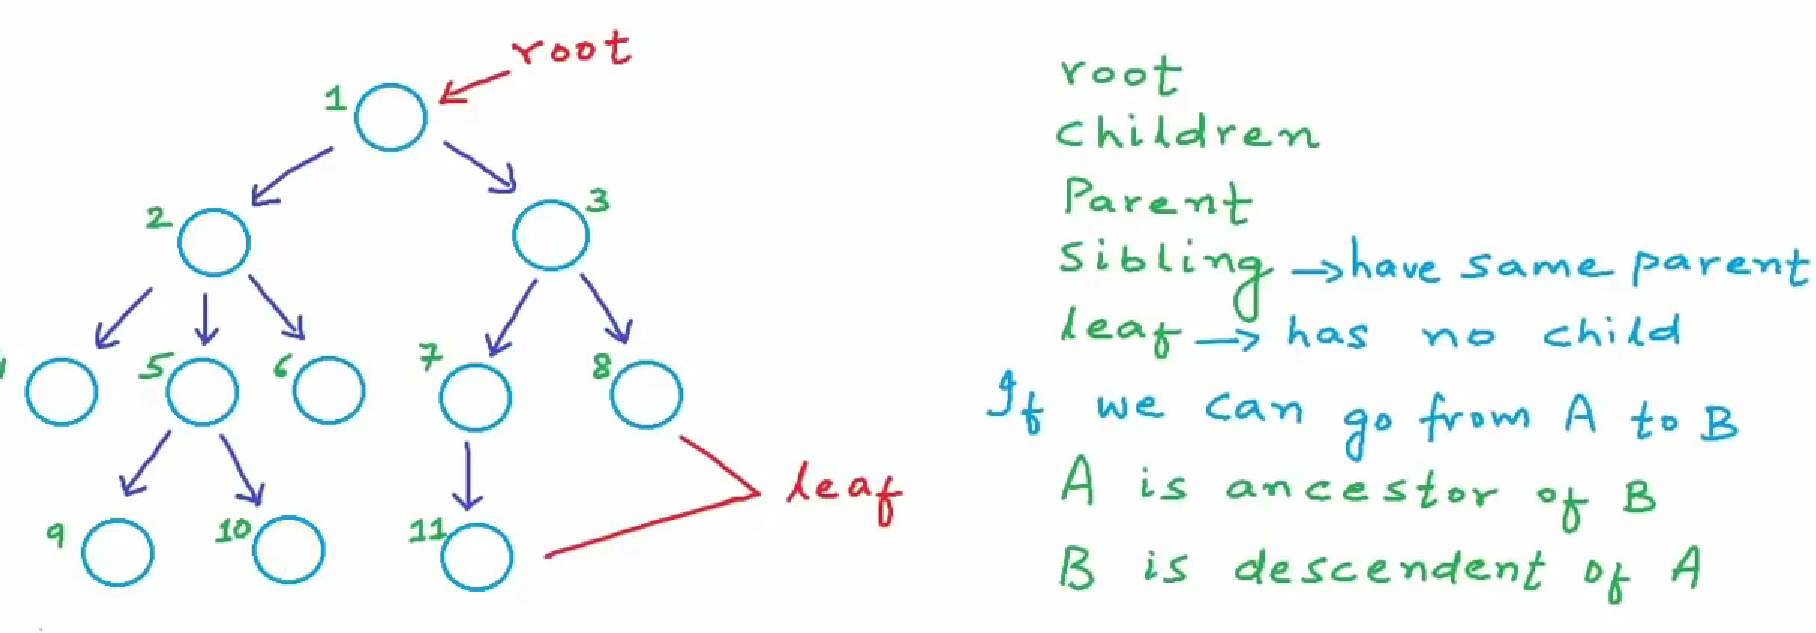 root
1
2
3
5
6
7
8
leaf
9
10
11
root
children
Parent
Sibling → have same parent
leaf → has no child
If we can go from A to B
A is ancestor of B
B is descendent of A